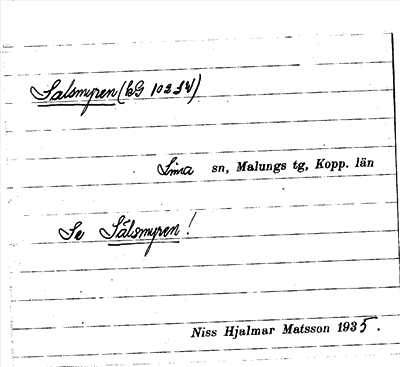 Salsmyren (kG 102 SV)
Lima sn, Malungs tg, Kopp. län
Se Sälsmyren!
Niss Hjalmar Matsson 1935.